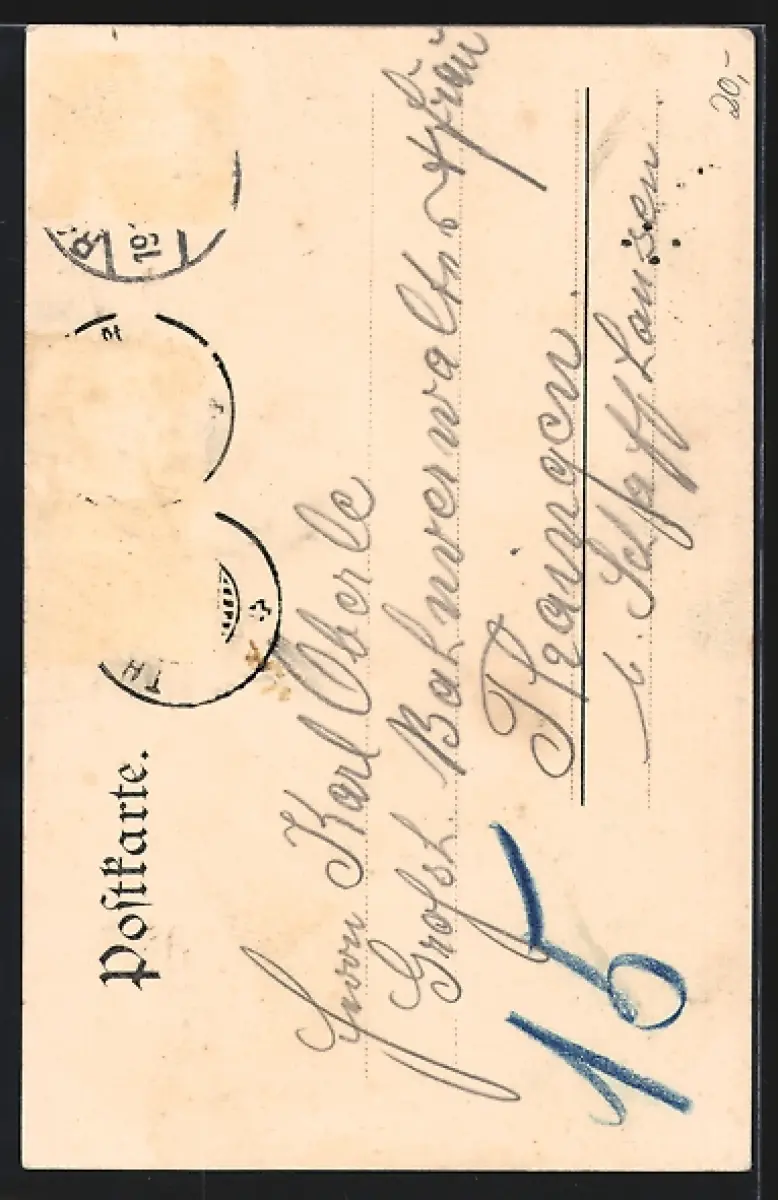 Postkarte.
Herrn Karl Oberle
Grofsh. Bahnverwalter & Frau
Thaingen
b. Schaffhausen
15
20,-
19
TH